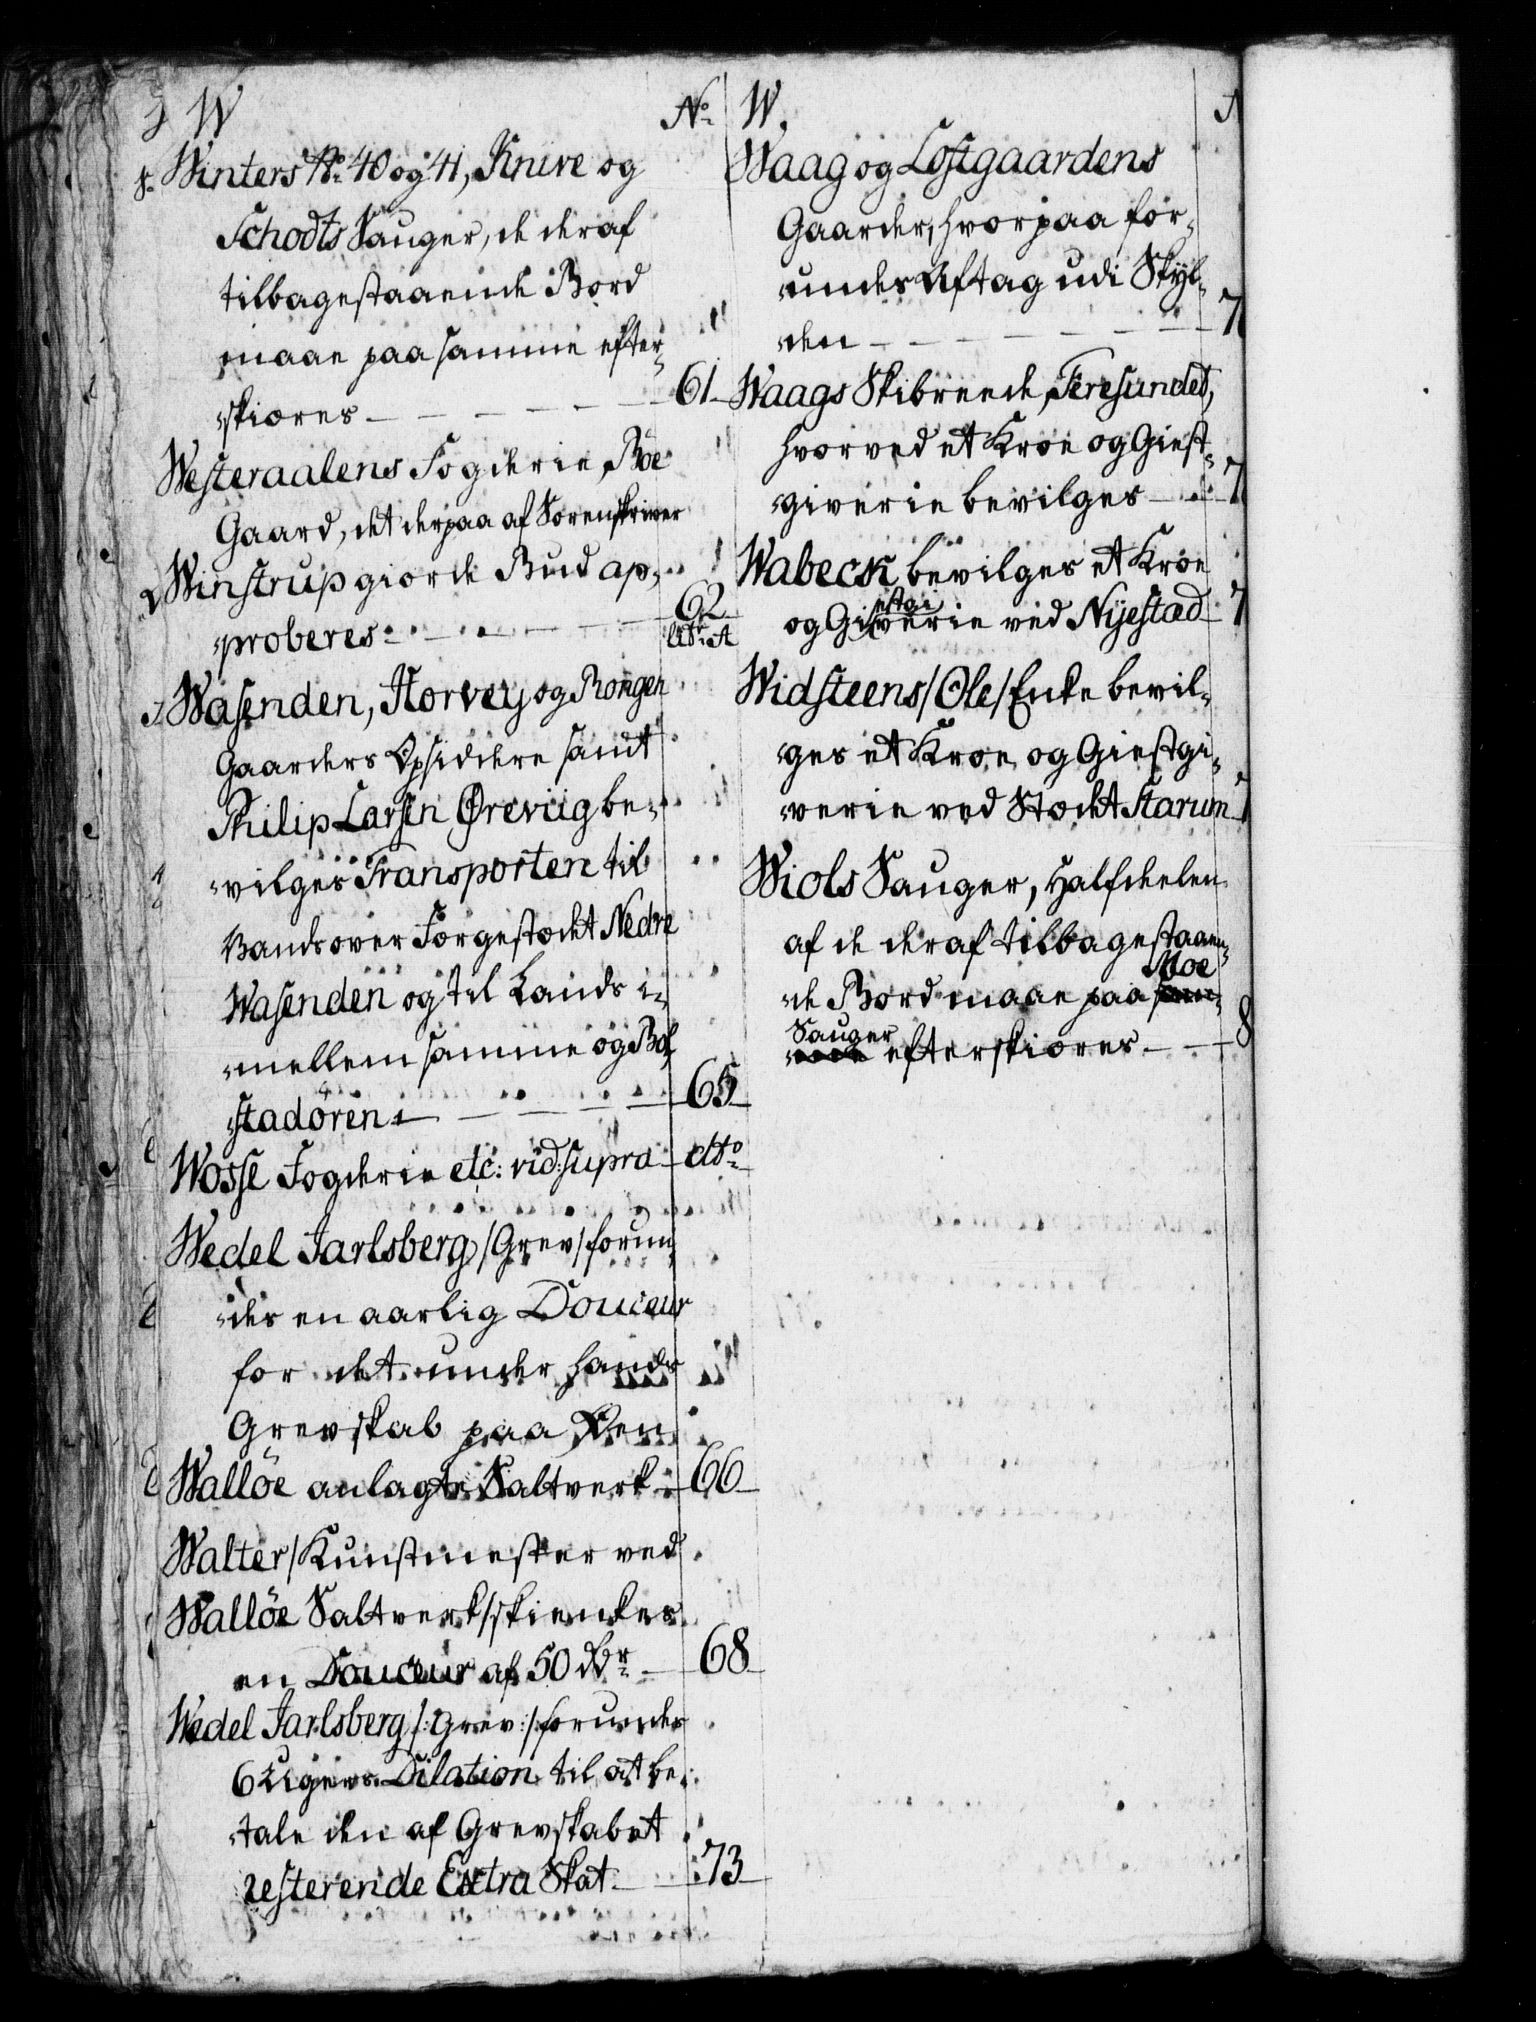 W
No
Winters No 40 og 41, Knive og
Schodts Sauger, de deraf
tilbagestaaende Bord
maae paa samme efter-
skiæres
61
Westeraalens Fogderie, Böe
Gaard, det derpaa af Sorenskriver
Winstrup giorde Bud ap-
proberes
62
litr. A
Wasenden, Horvey og Rongen
Gaarders Opsiddere samt
Philip Larsen Öreviig be-
vilges Transporten til
Vands over Torgestædt Nedre
Wasenden og til Lands i-
mellem samme og Bol-
stadören
65
Wosse Fogderie etc: vid: supra
dto
Wedel Jarlsberg /Grev/ forun-
des en aarlig Douceur
for det under hands
Grevskab paa Øen
Wallöe anlagte Saltverk
66
Walter /Kunstmester ved
Wallöe Saltverk/ skienkes
en Douceur af 50 dlr
68
Wedel Jarlsberg /:Grev:/ forundes
6 Ugers Dilation til at be-
tale den af Grevskabet
resterende Extra Skat
73
W.
Waag og Lostgaardens
Gaarder, hvorpaa for-
undes Aftag udi Skyl-
den
7
Waags Skibreede, Feresundet,
hvorved et Kroe og Giest-
giverie bevilges
7
Wabeck bevilges et Kroe
og Giestgiverie ved Nyestæd
7
Widsteens /Ole/ Enke bevil-
ges et Kroe og Giestgi-
verie ved Stædet Starum
7
Wiols Sauger, Halfdeelen
af de deraf tilbagestaaen-
de Bord maae paa Moe
Sauger efterskiæres
8